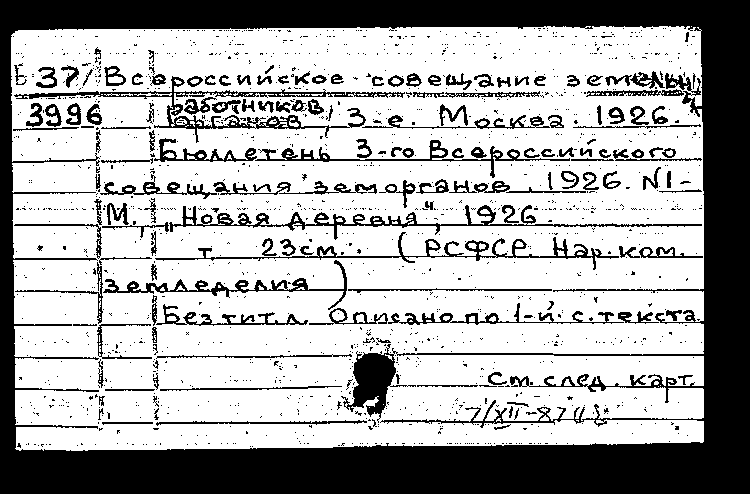 Б 37/ Всероссийское совещание земельн
3996 работников
органов, 3-е. Москва. 1926.
Бюллетень 3-го Всероссийского
совещания земорганов. 1926. N1-
М., "Новая деревня", 1926.
т. 23см. (РСФСР. Нар.ком.
земледелия).
Без тит.л. Описано по 1-й с. текста
См. след. карт.
7/XII-87